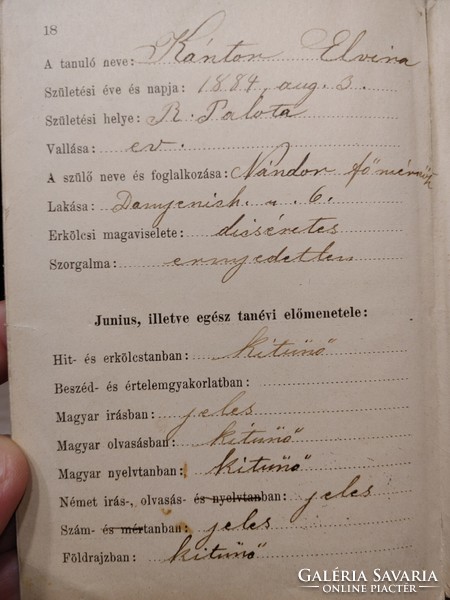 18
A tanuló neve: Kántor Elvira
Születési éve és napja: 1884. aug. 3.
Születési helye: R. Palota
Vallása: ev.
A szülő neve és foglalkozása: Nándor főmérnök
Lakása: Damjenich. u. 6.
Erkölcsi magaviselete: dicséretes
Szorgalma: ernyedetlen
Junius, illetve egész tanévi előmenetele:
Hit- és erkölcstanban: kitünő
Beszéd- és értelemgyakorlatban:
Magyar irásban: jeles
Magyar olvasásban: kitünő
Magyar nyelvtanban: kitünő
Német irás-, olvasás- és nyelvtanban: jeles
Szám- és mértanban: jeles
Földrajzban: kitünő
GALÉRIA SAVARIA
ONLINE PIACTÉR